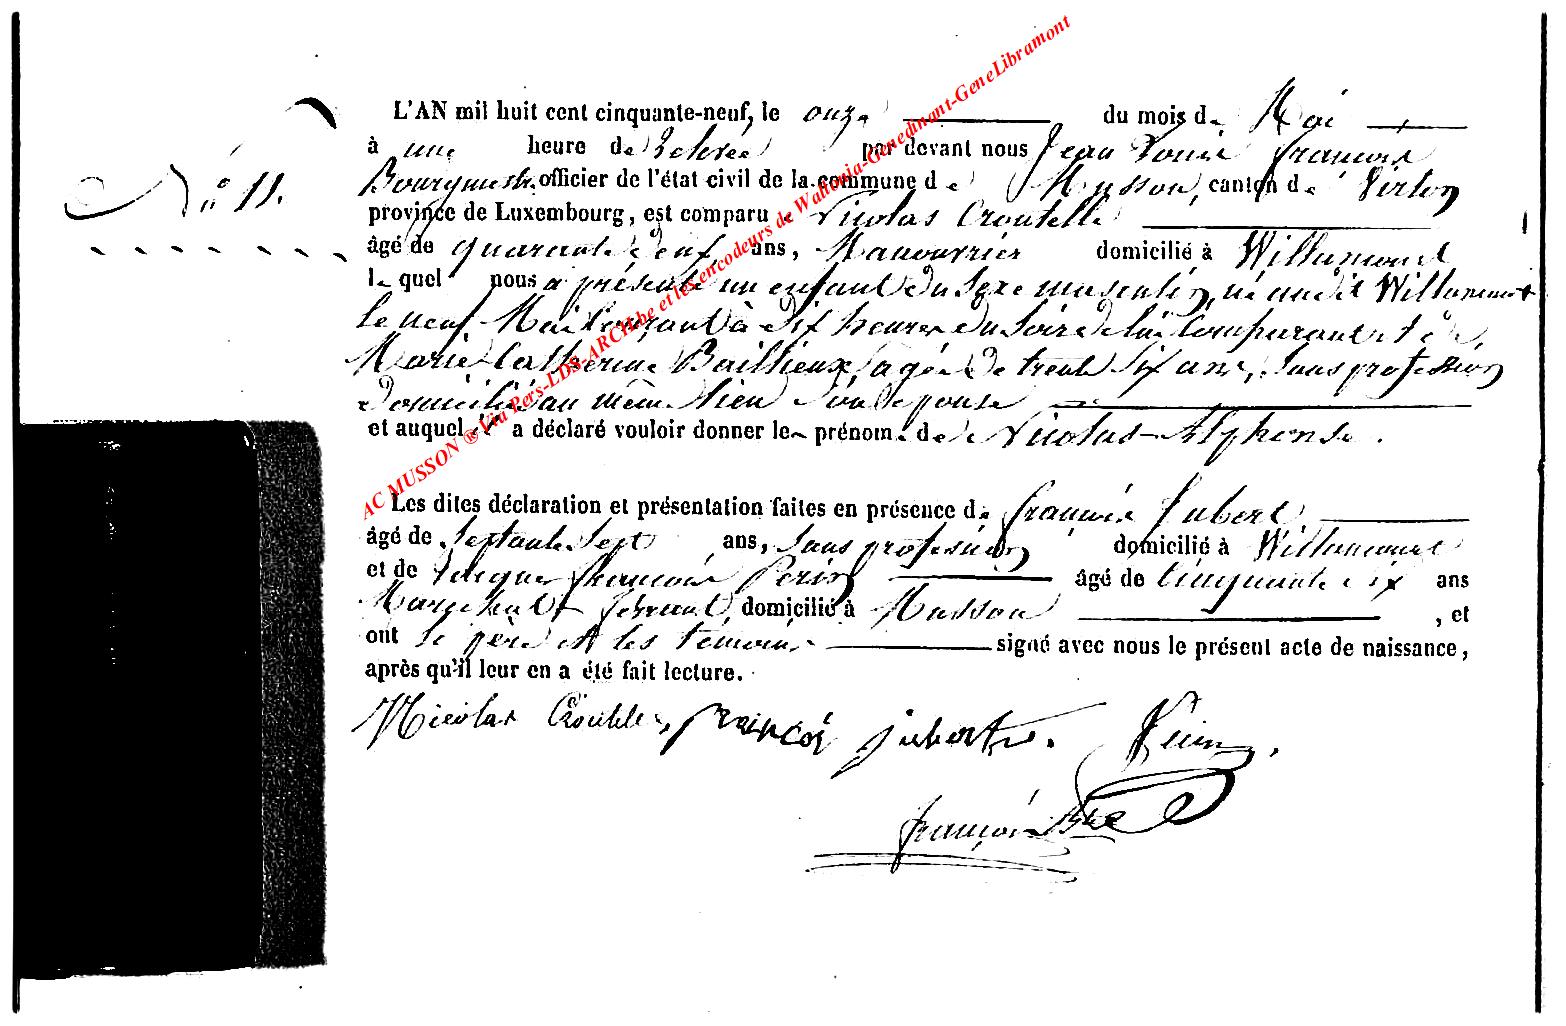 L'AN mil huit cent cinquante-neuf, le onze du mois de Mai
à une heure de Relevée par devant nous Jean Louis François
Bourgmestre officier de l'état civil de la commune de Musson, canton de Virton
N° 11.
province de Luxembourg, est comparu Nicolas Croutelle
âgé de quarante neuf ans, Manouvrier domicilié à Willancourt
lequel nous a présenté un enfant du sexe masculin, né audit Willancourt
le neuf Mai courant à dix heures du soir de lui comparant et de
Marie Catherine Baillieux, agée de trente six ans, sans profession
domiciliés au même lieu son épouse
et auquel il a déclaré vouloir donner les prénoms de Nicolas-Alphonse.
Les dites déclaration et présentation faites en présence de François Jubert
âgé de septante sept ans, sans profession domicilié à Willancourt
et de François Perin âgé de cinquante six ans
Maréchal ferrant, domicilié à Musson, et
ont le père et les témoins signé avec nous le présent acte de naissance,
après qu'il leur en a été fait lecture.
Nicolas Croutelle, françois jubert
françois
AC MUSSON ® Via Pers-LDS-ARCH.be et les encodeurs de Wallonia-Genedinant-GeneLibramont